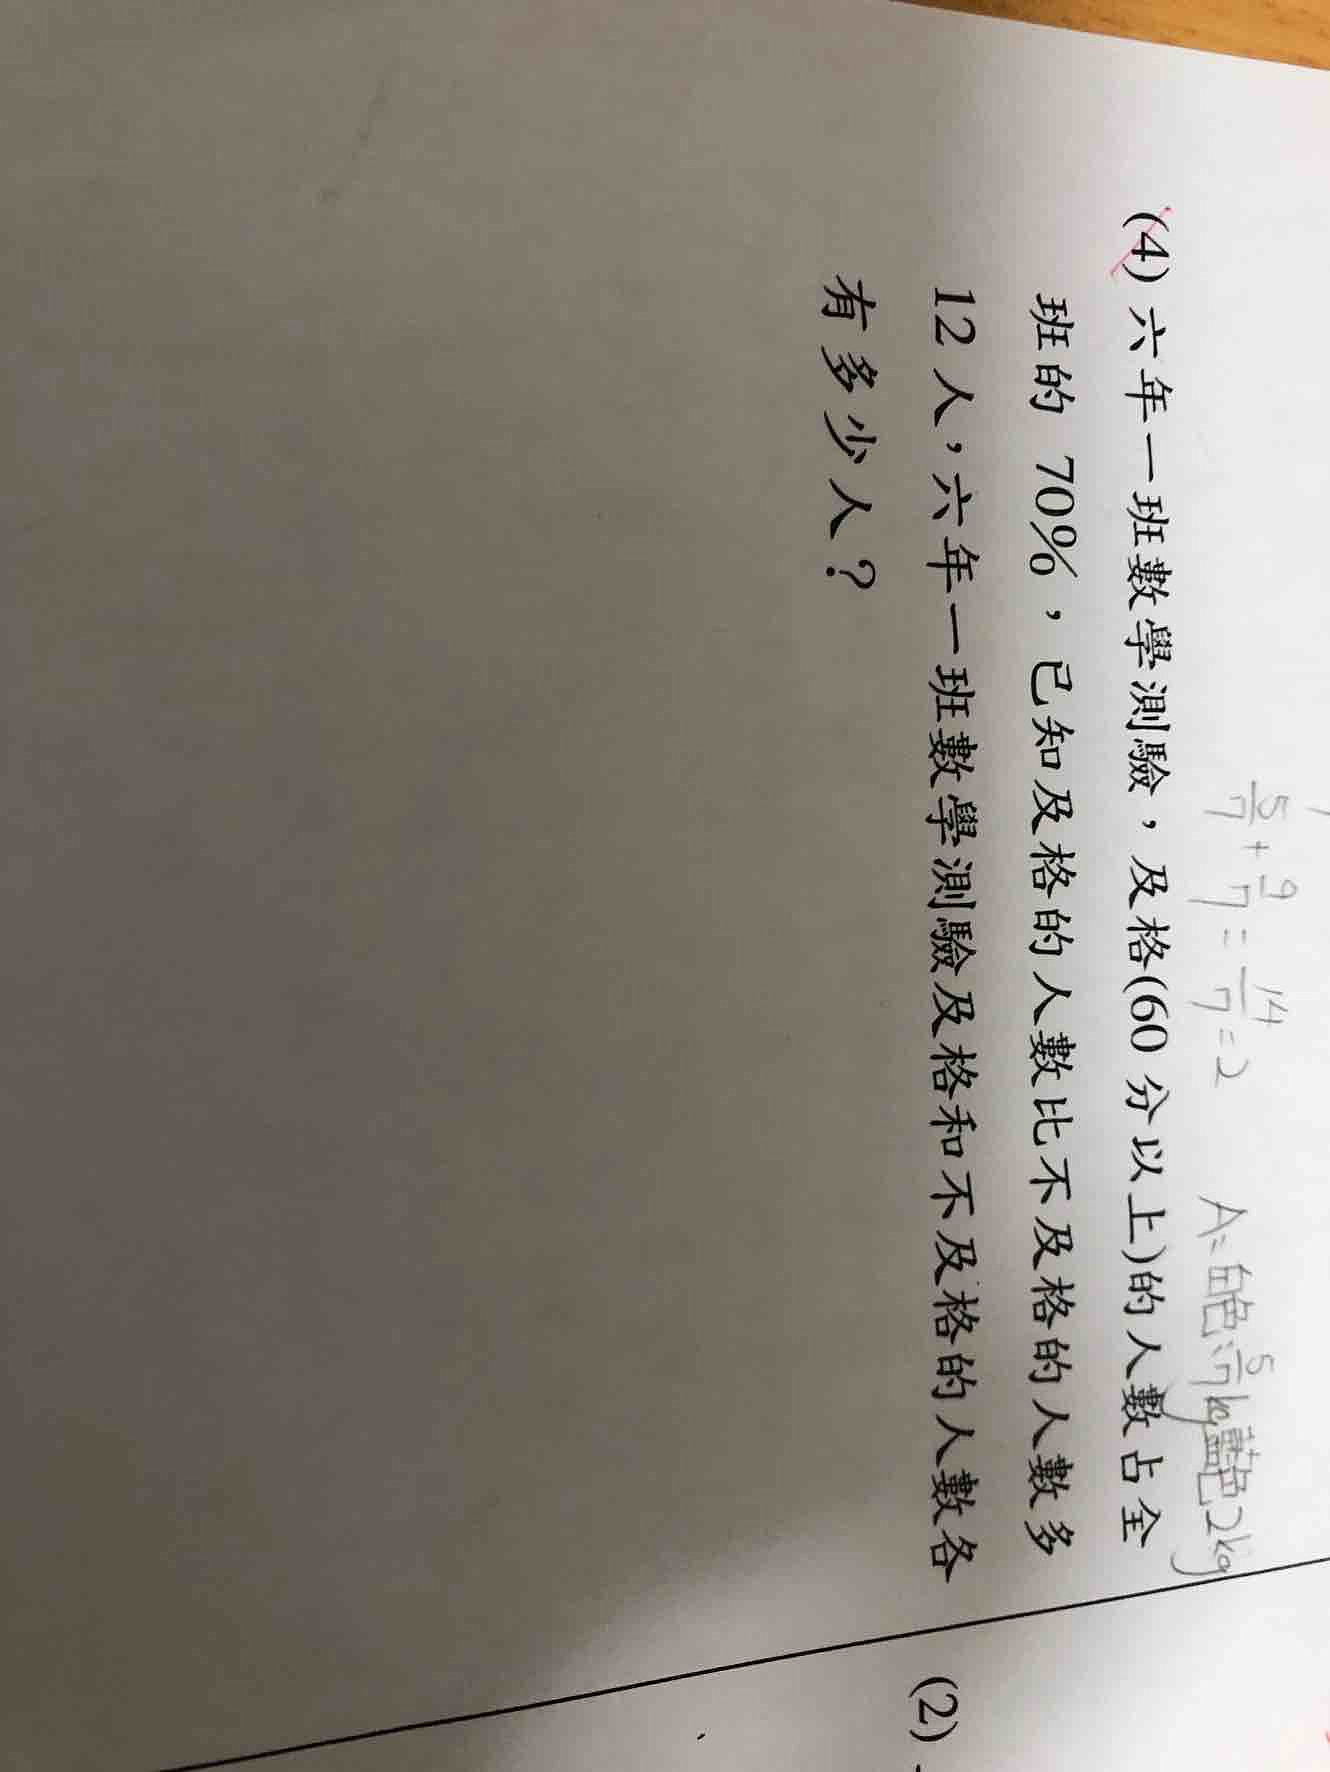 5/7 + 9/7 = 14/7 = 2 A=白色:5/7kg藍色2kg
(4) 六年一班數學測驗,及格(60 分以上)的人數占全
班的 70%,已知及格的人數比不及格的人數多
12人,六年一班數學測驗及格和不及格的人數各
有多少人?
(2)